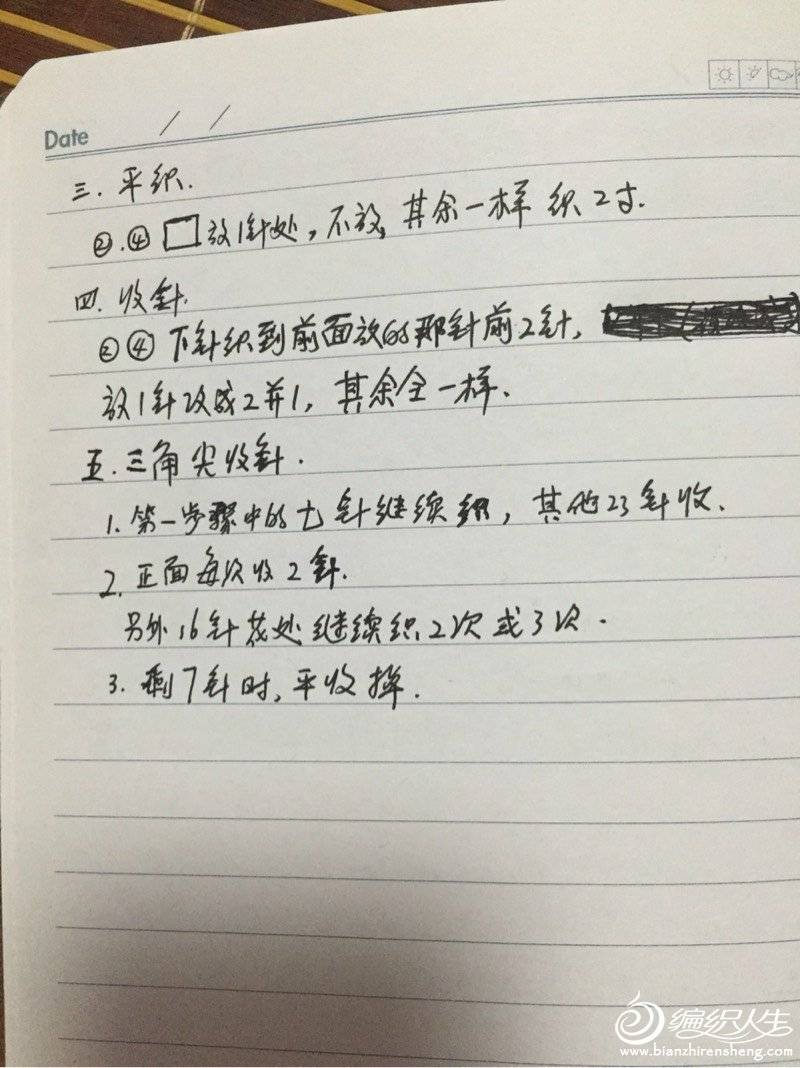 Date / /
三.平织.
②.④ □ 放1针处,不放,其余一样 织2寸.
四.收针.
②④ 下针织到前面放的那针前2针,
放1针改成2并1,其余全一样.
五.三角尖收针.
1.第一步骤中的七针继续织,其他23针收.
2.正面每次收2针.
另外16针花处继续织2次或3次.
3.剩7针时,平收掉.
编织人生
www.bianzhirensheng.com